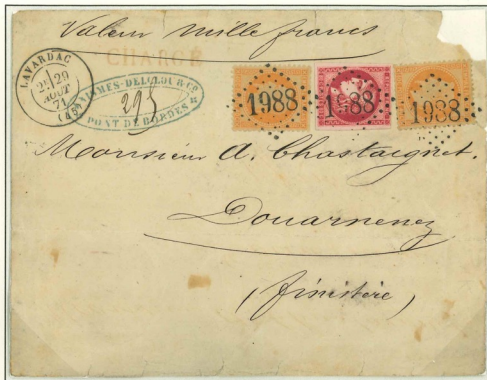 Valeur mille francs
CHARGÉ
LAVARDAC
29
AOUT
71
PONT DE BORDES
295
1988
1988
1988
Monsieur A. Chastaignet.
Douarnenez
(finistère)